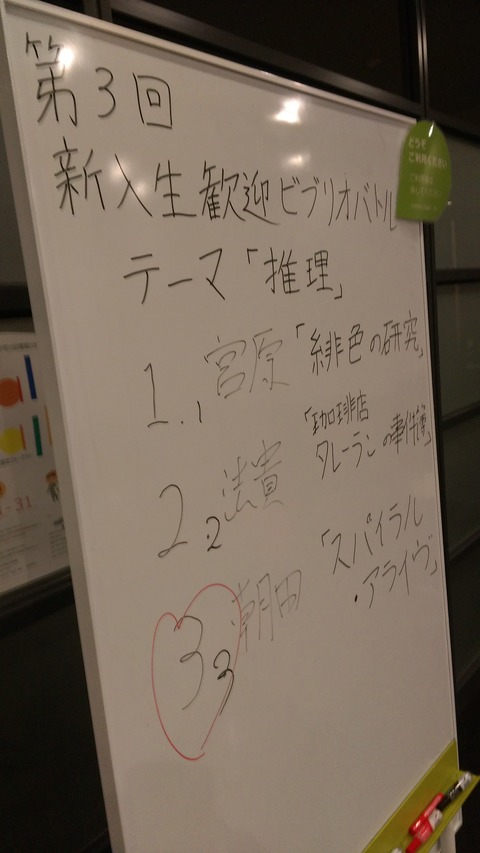 第3回
新入生歓迎ビブリオバトル
テーマ「推理」
1.1 宮原「緋色の研究」
2.2 法貴「珈琲店
タレーランの事件簿」
3 3 朝田「スパイラル
・アライヴ」
どうぞ
ご利用ください